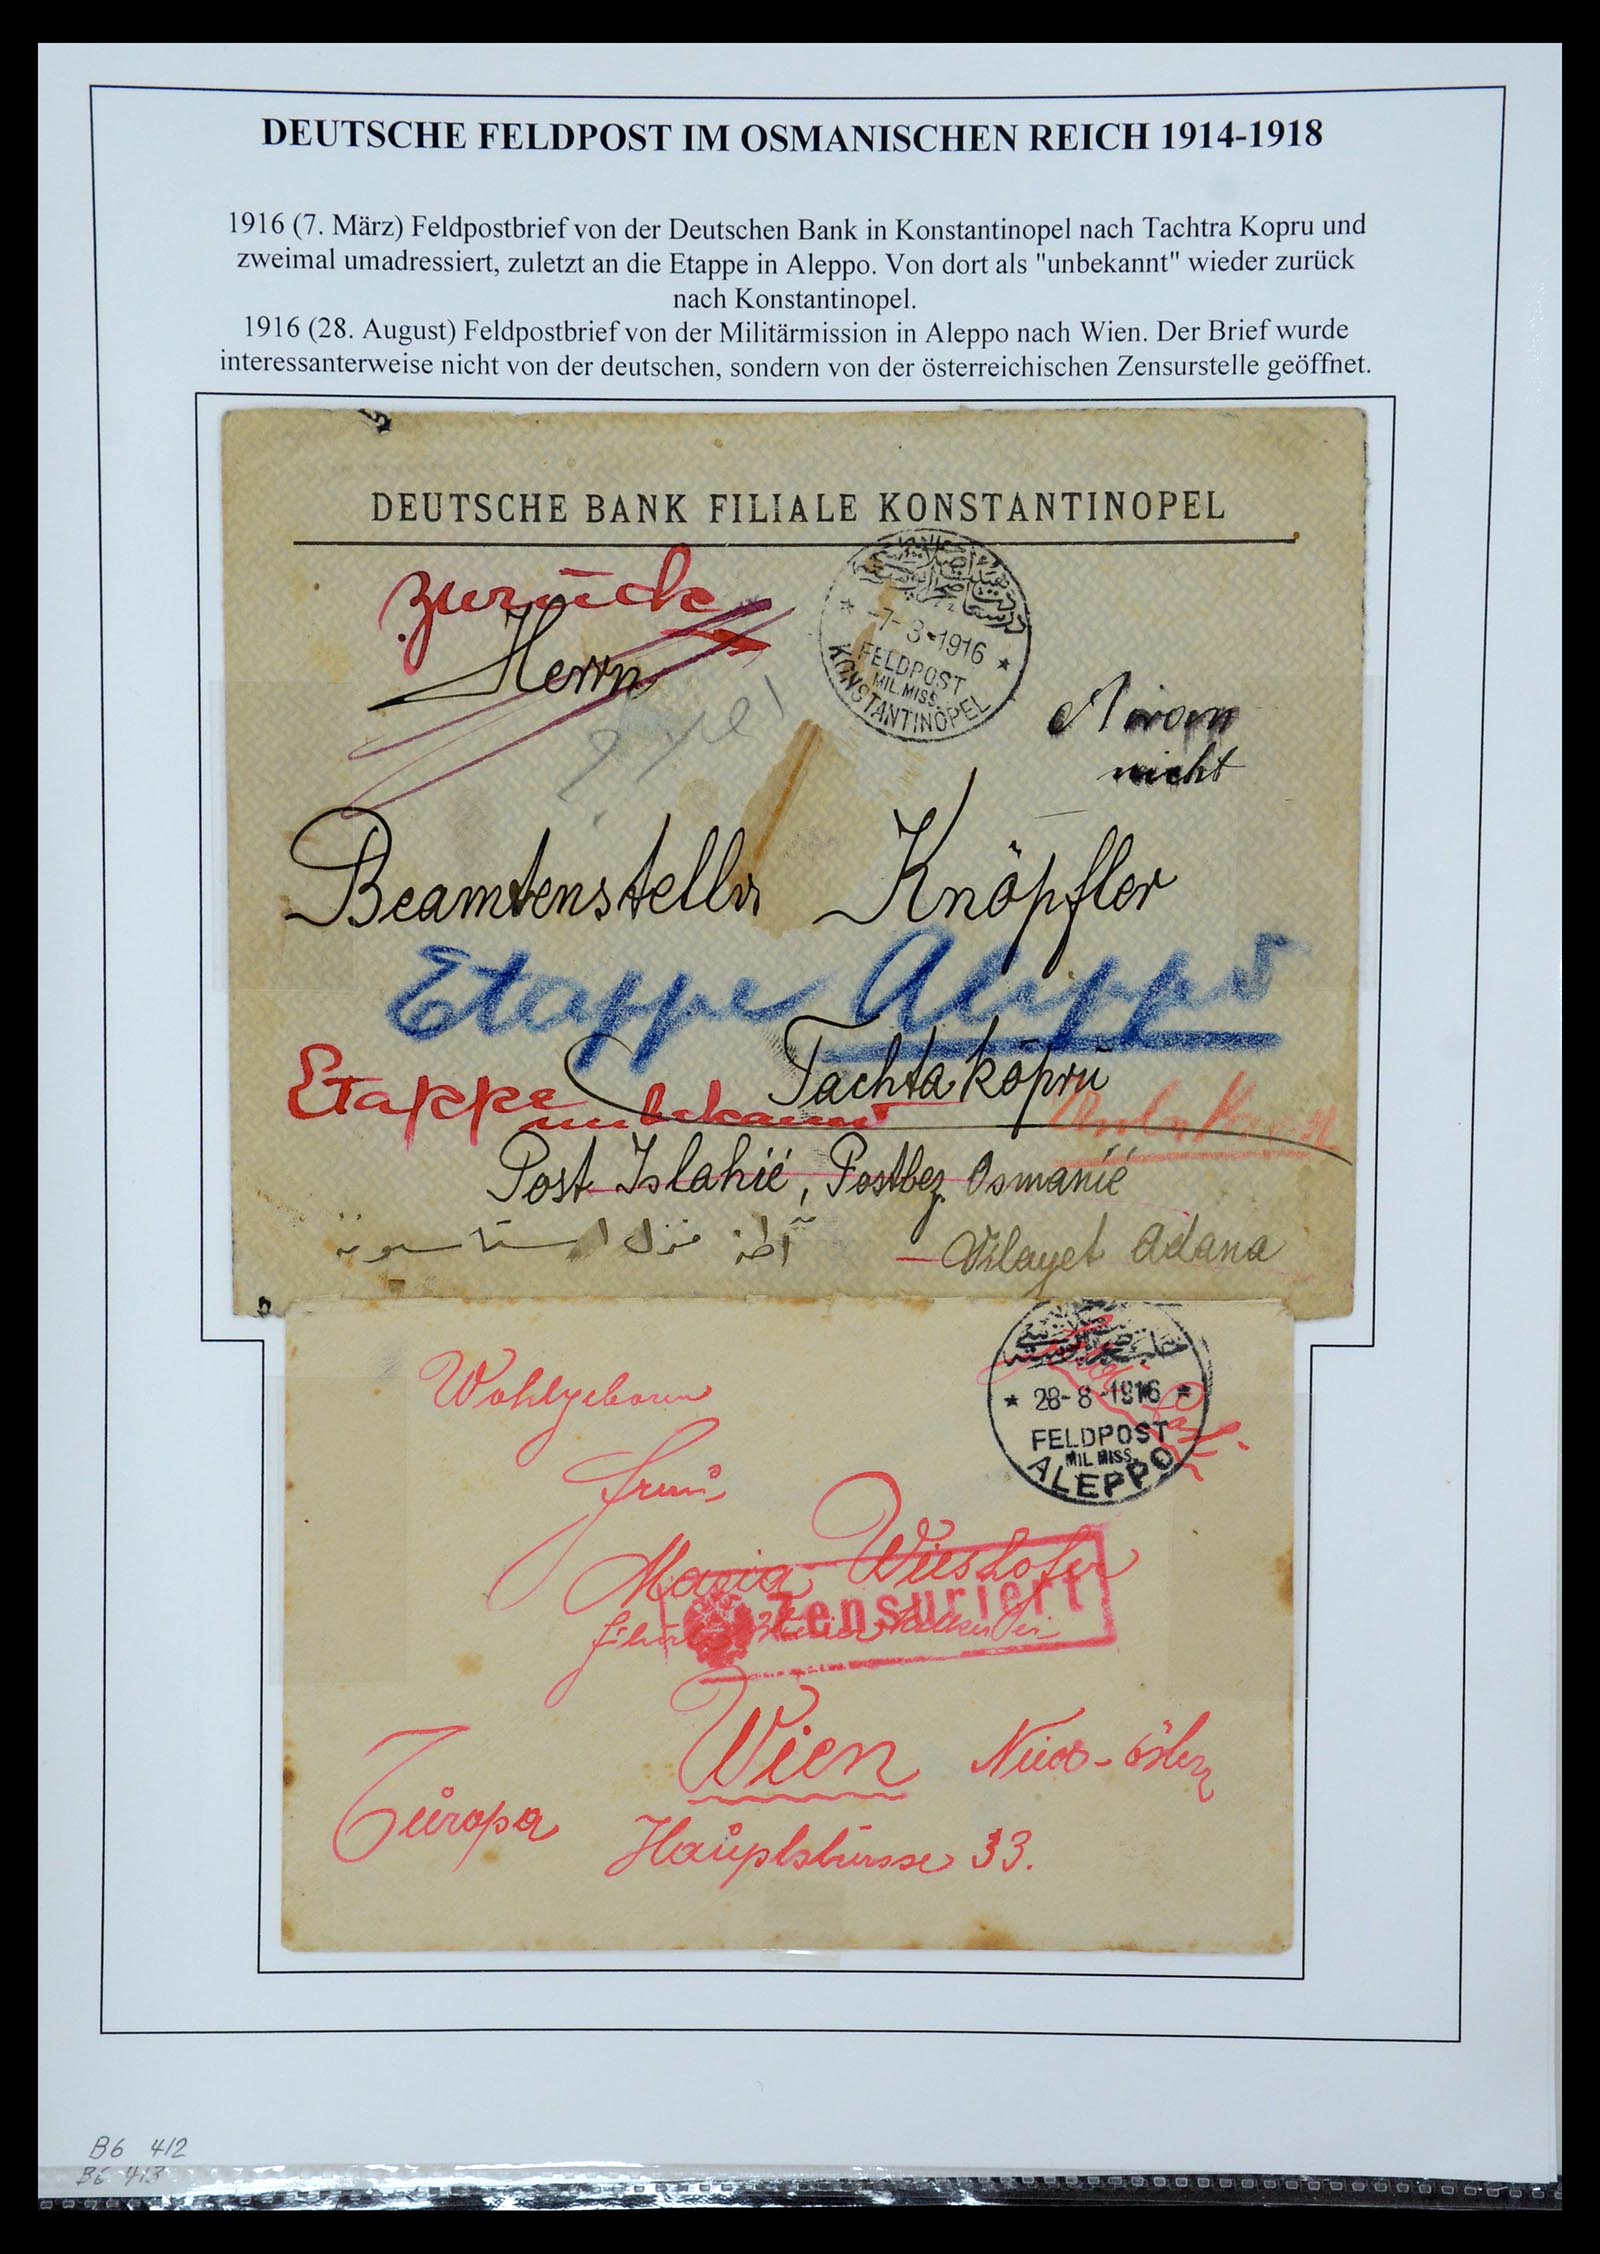 DEUTSCHE FELDPOST IM OSMANISCHEN REICH 1914-1918
1916 (7. März) Feldpostbrief von der Deutschen Bank in Konstantinopel nach Tachtra Kopru und
zweimal umadressiert, zuletzt an die Etappe in Aleppo. Von dort als "unbekannt" wieder zurück
nach Konstantinopel.
1916 (28. August) Feldpostbrief von der Militärmission in Aleppo nach Wien. Der Brief wurde
interessanterweise nicht von der deutschen, sondern von der österreichischen Zensurstelle geöffnet.
DEUTSCHE BANK FILIALE KONSTANTINOPEL
zurück
Herrn
-7-3-1916
FELDPOST
MIL.MISS.
KONSTANTINOPEL
nicht
Knöpfler
Etappe Aleppo
Tachtaköprü
Etappe unbekannt
Post Islahié, Postbez. Osmanié
Vilayet Adana
28-8-1916
FELDPOST
MIL.MISS.
ALEPPO
Wohlgeboren
Maria Wieshofer
Zensuriert
Wien
Europa
33.
B6 412
B6 413